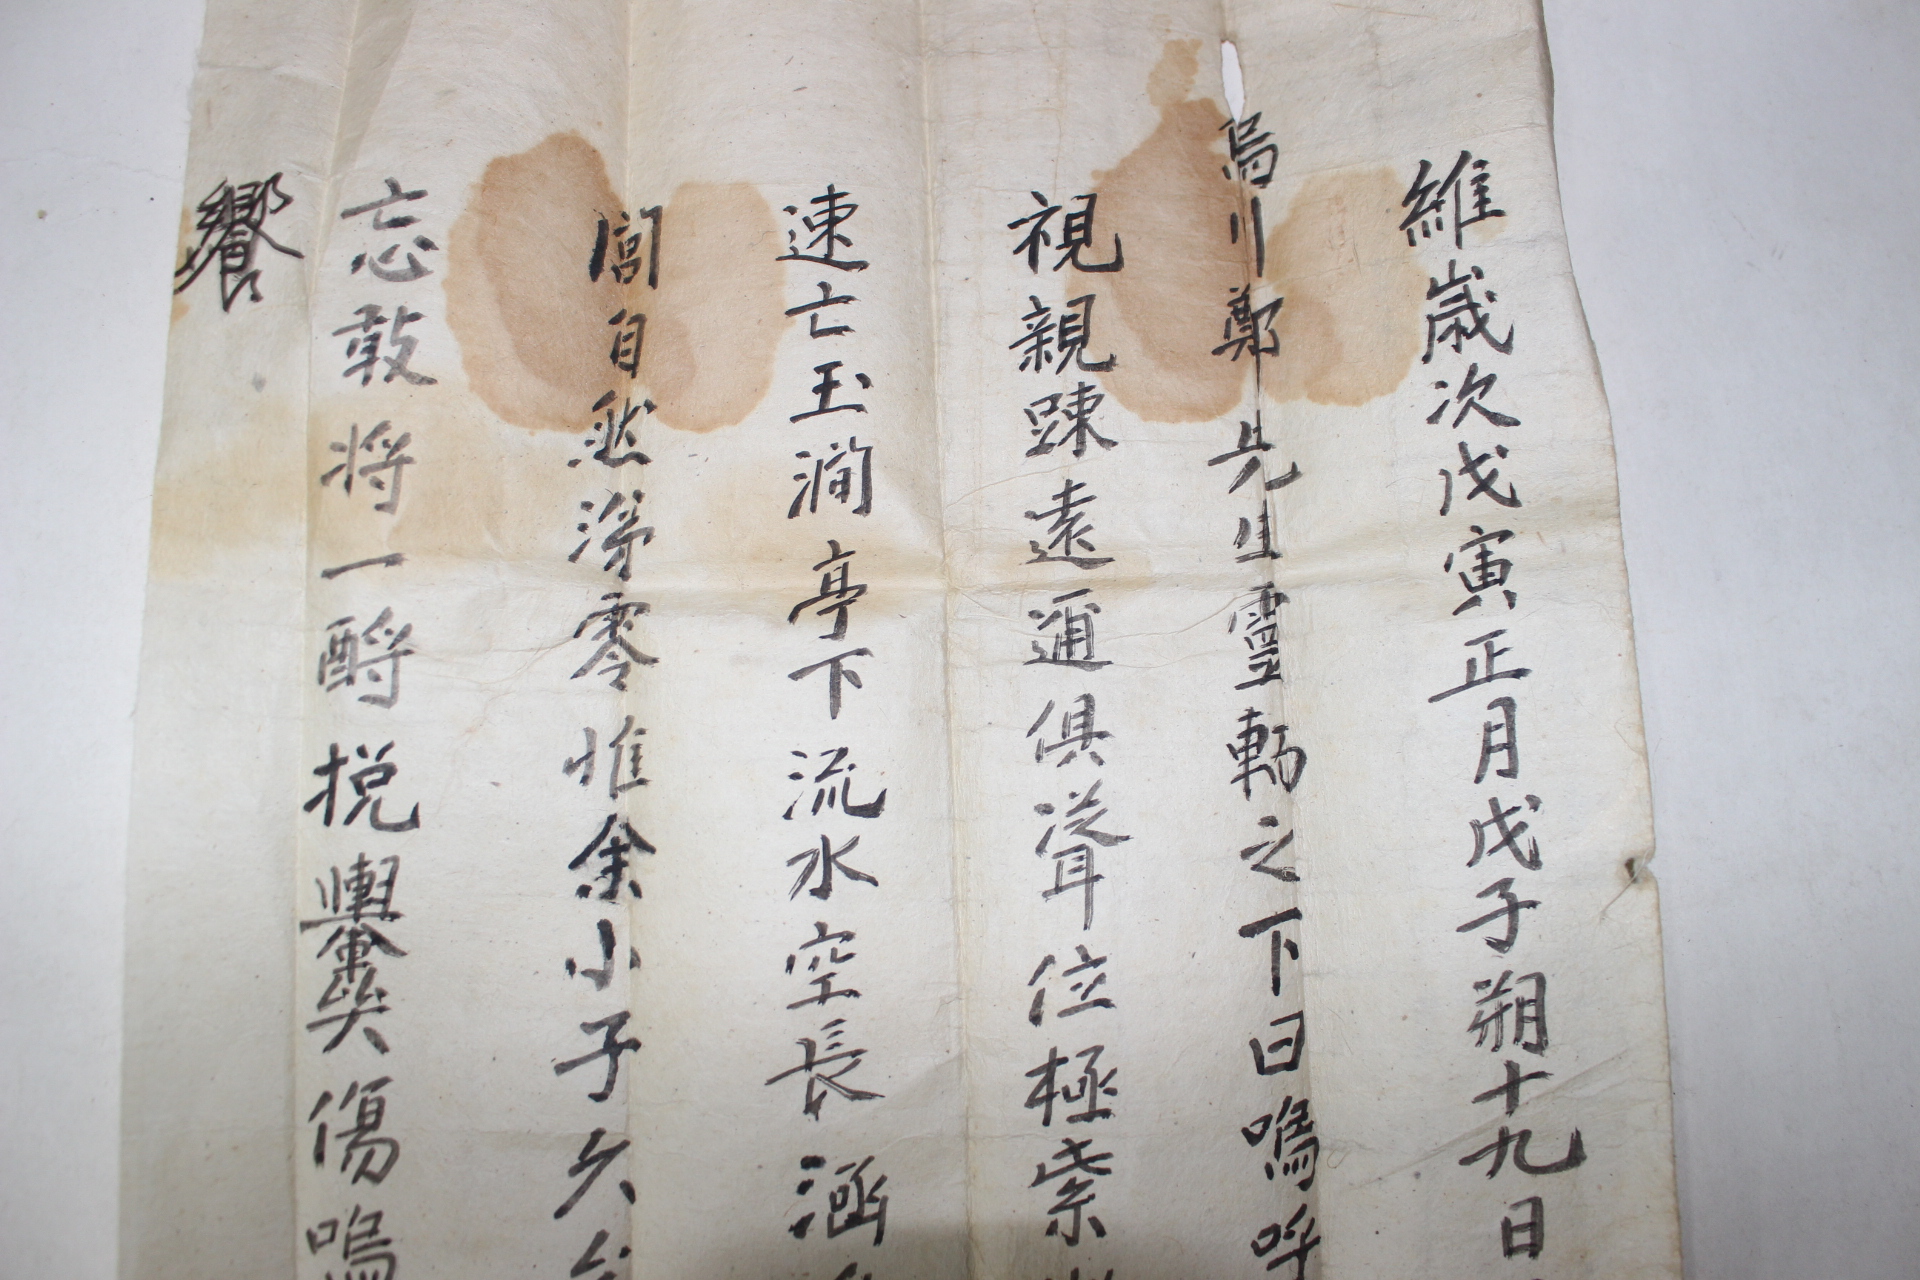 維歲次戊寅正月戊子朔十九日
烏川鄭先生靈輀之下曰嗚呼
視親踈遠邇俱聳位極紫
速亡玉澗亭下流水空長涵
闾自然涕零惟余小子久
忘敢將一酹挽轝奠傷嗚
饗